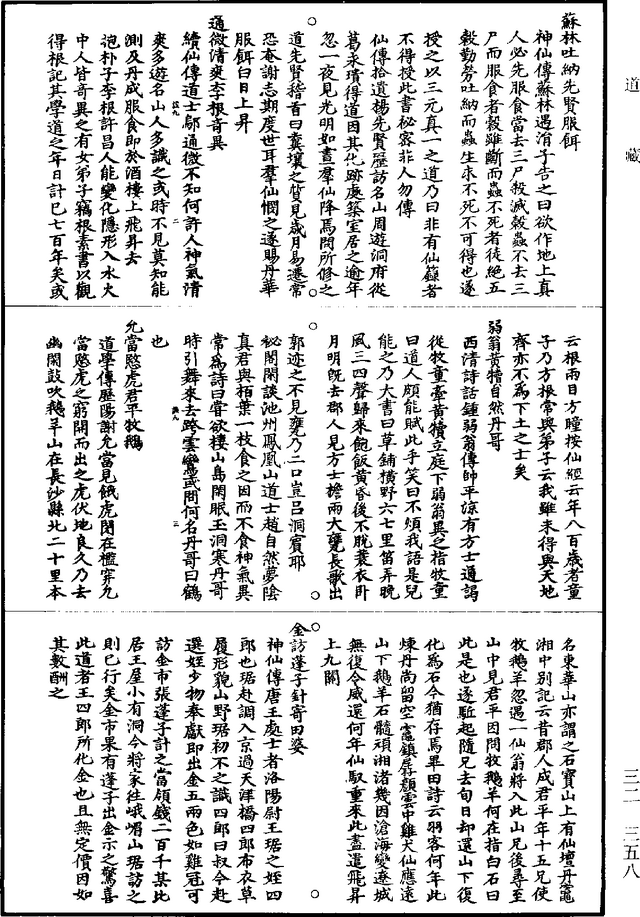 道藏
三二 三五八
蘇林吐納先賢服餌
神仙傳蘇林遇涓子告之曰欲作地上真
人必先服食當去三尸殺滅穀蟲不去三
尸而服食者穀雖斷而蟲不死者徒絕五
穀勤勞吐納而蟲生求不死不可得也遂
授之以三元真一之道乃曰非有仙籙者
不得授此書秘密非人勿傳
仙傳拾遺楊先賢歷訪名山周遊洞府從
葛永璝得道因其化跡處築室居之逾年
忽一夜見光明如晝羣仙降焉問所修之
道先賢稽首曰糞壤之質見歲月易遷常
恐奄謝志期度世耳羣仙憫之遂賜丹華
服餌白日上昇
通微清爽李根奇異
續仙傳道士鄔通微不知何許人神氣清
爽多遊名山人多識之或時不見莫知能
測及丹成服食即於酒樓上飛昇去
抱朴子李根許昌人能變化隱形入水火
中人皆奇異之有女弟子竊根素書以觀
得根記其學道之年日計已七百年矣或
云根兩目方瞳按仙經云年八百歲者童
子乃方根常與弟子云我雖未得與天地
齊亦不為下土之士矣
弱翁黃犢自然丹哥
西清詩話鍾弱翁傳帥平涼有方士通謁
從牧童牽黃犢立庭下弱翁異之指牧童
曰道人頗能賦此乎笑曰不煩我語是兒
能之乃大書曰草鋪橫野六七里笛弄晚
風三四聲歸來飽飯黃昏後不脫蓑衣臥
月明旣去郡人見方士擔兩大甕長歌出
郭迹之不見甕乃二口豈呂洞賓耶
秘閣閑談池州鳳凰山道士趙自然夢陰
真君與栢葉一枝食之因而不食神氣異
常為詩曰嘗欲棲山島閑眠玉洞寒丹哥
時引舞來去跨雲鸞或問何名丹哥曰鶴
也
允當愍虎君平牧鵝
道學傳歷陽謝允當見餓虎閉在檻穽九
當愍虎之窮開而出之虎伏地良久乃去
幽閑鼓吹鵝羊山在長沙縣北二十里本
名東華山亦謂之石寶山上有仙壇丹竈
湘中別記云昔郡人成君平年十五兄使
牧鵝羊忽遇一仙翁將入此山兄後尋至
山中見君平因問牧鵝羊何在指白石曰
此是也遂駈起隨兄去旬日却還山下復
化為石今猶存焉畢田詩云羽客何年此
煉丹尚留空竈鎮孱顏雲中雞犬仙應遠
山下鵝羊石髓頑湘渚幾因滄海變遼城
無復令威還何年仙馭重來此盡遣飛昇
上九關
金訪蓬子針寄田婆
神仙傳唐王處士者洛陽尉王琚之姪四
郎也琚赴調入京過天津橋四郎布衣草
履形貌山野琚初不之識四郎曰叔今赴
選姪少物奉獻即出金五兩色如雞冠可
訪金市張蓬子計之當領錢二百千某比
居王屋小有洞今將家徃峨嵋山琚訪之
則已行矣金市果有蓬子出金示之驚喜
此道者王四郎所化金也且無定價因如
其數酬之